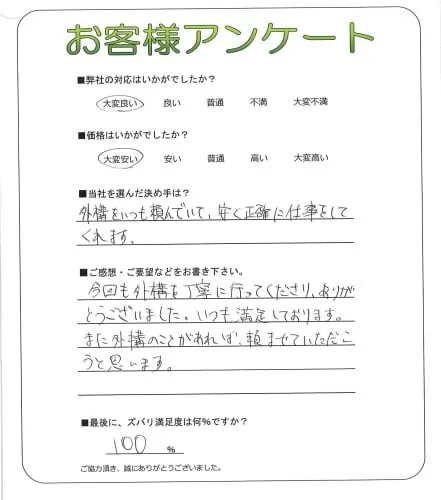 お客様アンケート
■弊社の対応はいかがでしたか？
大変良い 良い 普通 不満 大変不満
■価格はいかがでしたか？
大変安い 安い 普通 高い 大変高い
■当社を選んだ決め手は？
外構をいつも頼んでいて、安く正確に仕事をして
くれます。
■ご感想・ご要望などをお書き下さい。
今回も外構を丁寧に行ってくださり、ありが
とうございました。いつも満足しております。
また外構のことがあれば、頼ませていただこ
うと思います。
■最後に、ズバリ満足度は何％ですか？
100 ％
ご協力頂き、誠にありがとうございました。